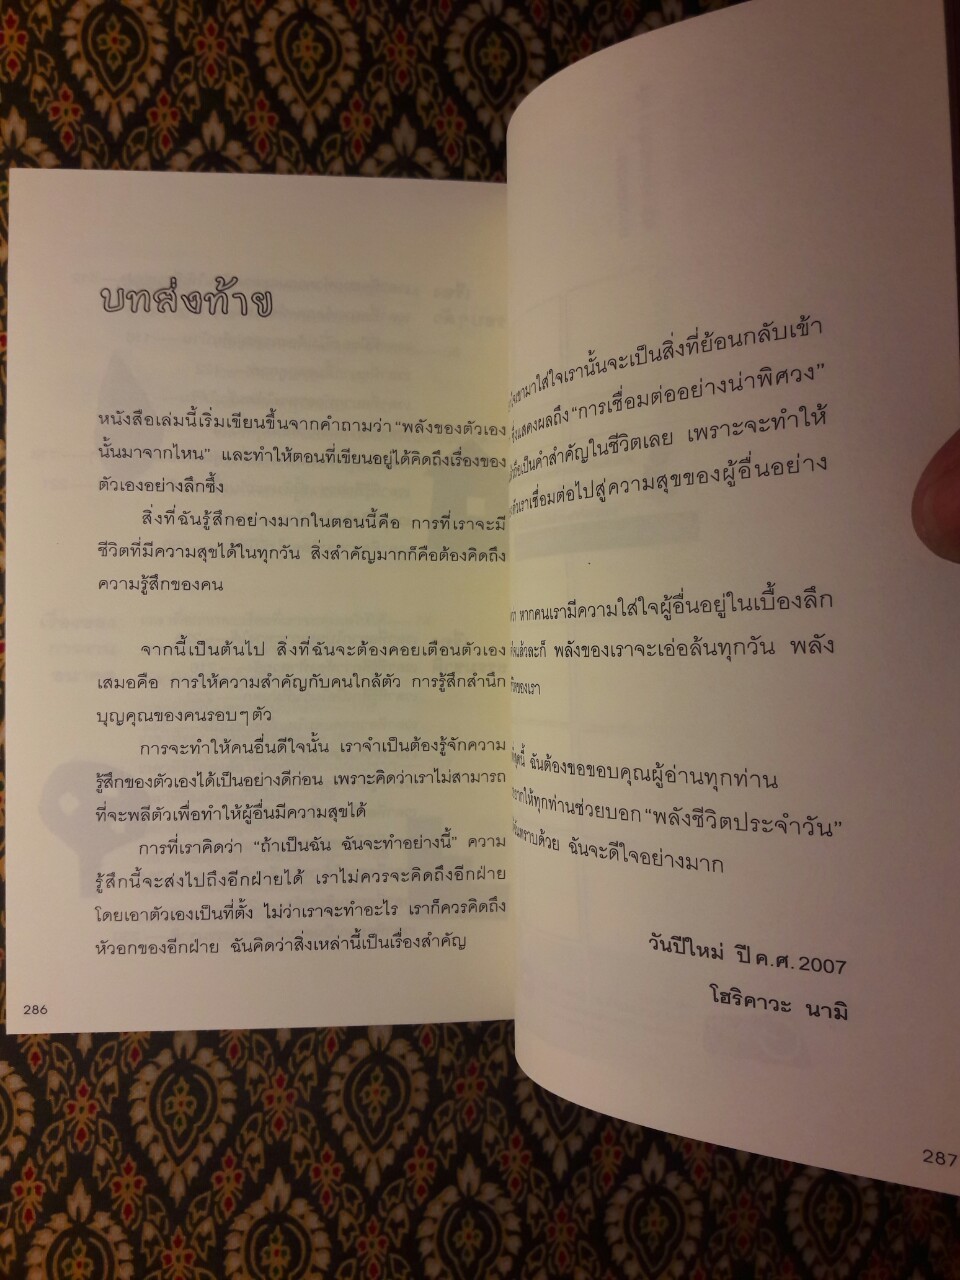 บทส่งท้าย
หนังสือเล่มนี้เริ่มเขียนขึ้นจากคำถามว่า “พลังของตัวเอง
นั้นมาจากไหน” และทำให้ตอนที่เขียนอยู่ได้คิดถึงเรื่องของ
ตัวเองอย่างลึกซึ้ง
สิ่งที่ฉันรู้สึกอย่างมากในตอนนี้คือ การที่เราจะมี
ชีวิตที่มีความสุขได้ในทุกวัน สิ่งสำคัญมากก็คือต้องคิดถึง
ความรู้สึกของคน
จากนี้เป็นต้นไป สิ่งที่ฉันจะต้องคอยเตือนตัวเอง
เสมอคือ การให้ความสำคัญกับคนใกล้ตัว การรู้สึกสำนึก
บุญคุณของคนรอบๆตัว
การจะทำให้คนอื่นดีใจนั้น เราจำเป็นต้องรู้จักความ
รู้สึกของตัวเองได้เป็นอย่างดีก่อน เพราะคิดว่าเราไม่สามารถ
ที่จะพลีตัวเพื่อทำให้ผู้อื่นมีความสุขได้
การที่เราคิดว่า “ถ้าเป็นฉัน ฉันจะทำอย่างนี้” ความ
รู้สึกนี้จะส่งไปถึงอีกฝ่ายได้ เราไม่ควรจะคิดถึงอีกฝ่าย
โดยเอาตัวเองเป็นที่ตั้ง ไม่ว่าเราจะทำอะไร เราก็ควรคิดถึง
หัวอกของอีกฝ่าย ฉันคิดว่าสิ่งเหล่านี้เป็นเรื่องสำคัญ
286
เขามาใส่ใจเรานั้นจะเป็นสิ่งที่ย้อนกลับเข้า
แสดงผลถึง “การเชื่อมต่ออย่างน่าพิศวง”
เป็นคำสำคัญในชีวิตเลย เพราะจะทำให้
เราเชื่อมต่อไปสู่ความสุขของผู้อื่นอย่าง
หากคนเรามีความใส่ใจผู้อื่นอยู่ในเบื้องลึก
แล้วละก็ พลังของเราจะเอ่อล้นทุกวัน พลัง
ของเรา
นี้ ฉันต้องขอขอบคุณผู้อ่านทุกท่าน
ให้ทุกท่านช่วยบอก “พลังชีวิตประจำวัน”
ทราบด้วย ฉันจะดีใจอย่างมาก
วันปีใหม่ ปี ค.ศ. 2007
โฮริคาวะ นามิ
287